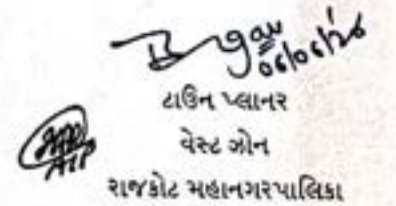 ટાઉન પ્લાનર
વેસ્ટ ઝોન
ATP
રાજકોટ મહાનગરપાલિકા